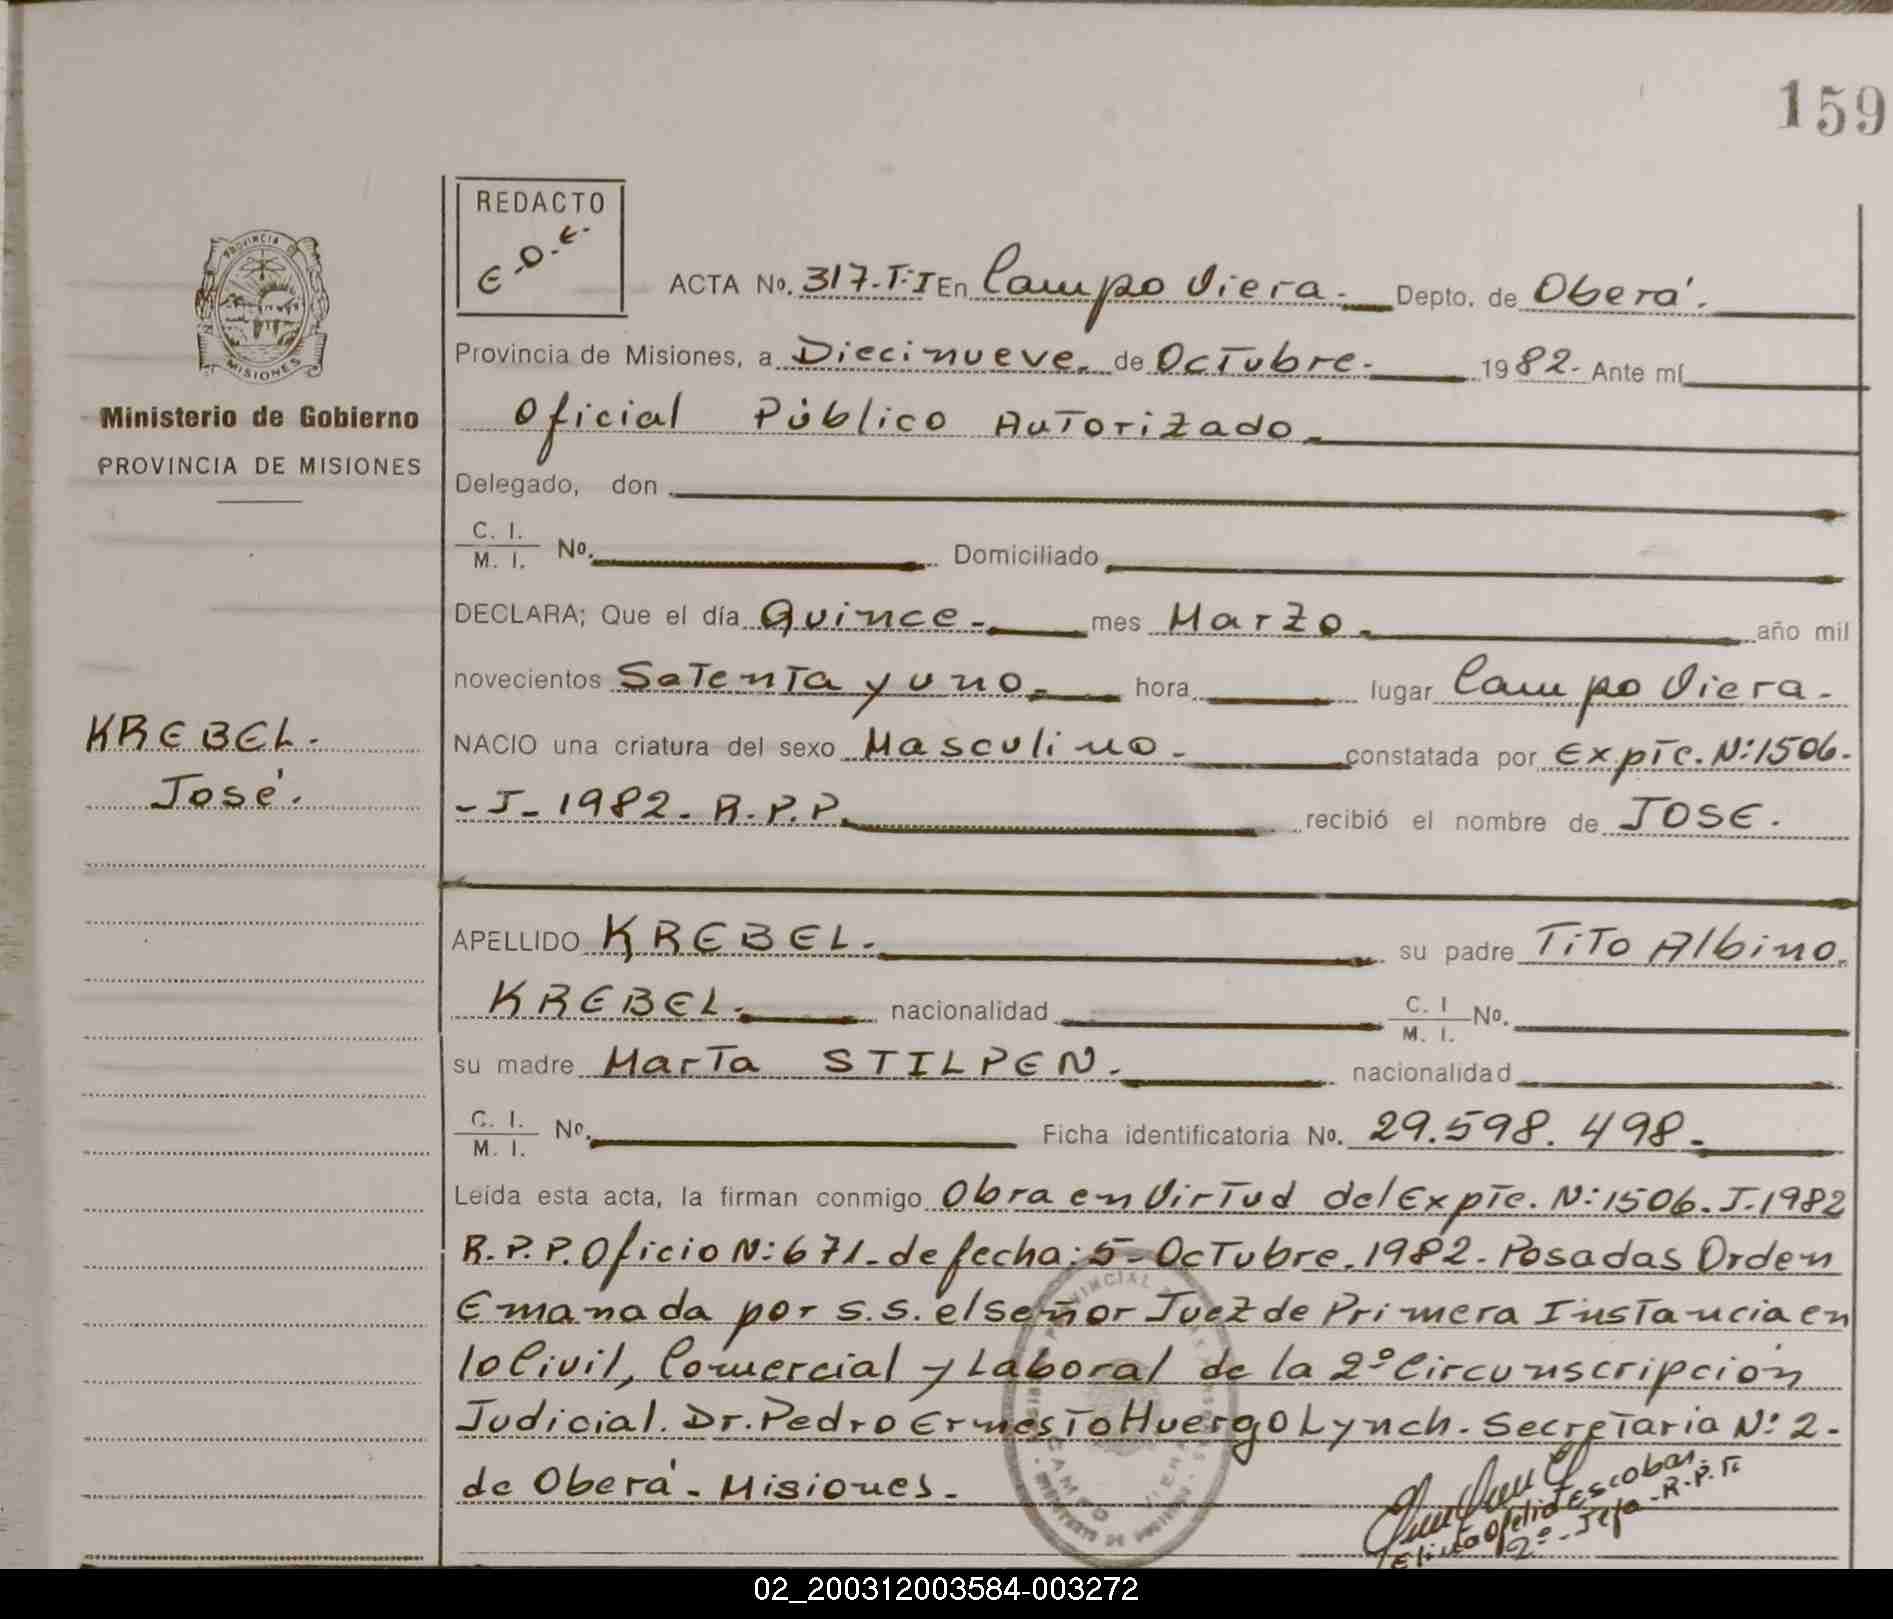 159
REDACTO
E-O-E-
PROVINCIA DE
MISIONES
Ministerio de Gobierno
PROVINCIA DE MISIONES
ACTA No. 317.T:I En Campo Viera. Depto. de Oberá.
Provincia de Misiones, a Diecinueve. de Octubre. 1982. Ante mí
Oficial Público Autorizado
Delegado, don
C. I.
M. I. No. Domiciliado
DECLARA; Que el día Quince. mes Marzo. año mil
novecientos Setenta y uno. hora lugar Campo Viera.
KREBEL.
José.
NACIO una criatura del sexo Masculino. constatada por Expte. N:1506.
-J-1982. R.P.P. recibió el nombre de JOSE.
APELLIDO KREBEL. su padre Tito Albino.
KREBEL. nacionalidad C. I
M. I. No.
su madre Marta STILPEN. nacionalidad
C. I.
M. I. No. Ficha identificatoria No. 29.598.498.
Leída esta acta, la firman conmigo Obra en Virtud del Expte. N:1506. J.1982
R.P.P. Oficio N:671. de fecha: 5-Octubre.1982. Posadas Orden
Emanada por S.S. el señor Juez de Primera Instancia en
lo Civil, Comercial y Laboral de la 2º Circunscripción
Judicial. Dr. Pedro Ernesto Huergo Lynch. Secretaria N: 2.
de Oberá. Misiones.
Ofelia Escobar.
2º-Jefa-R.P.P.
02_200312003584-003272